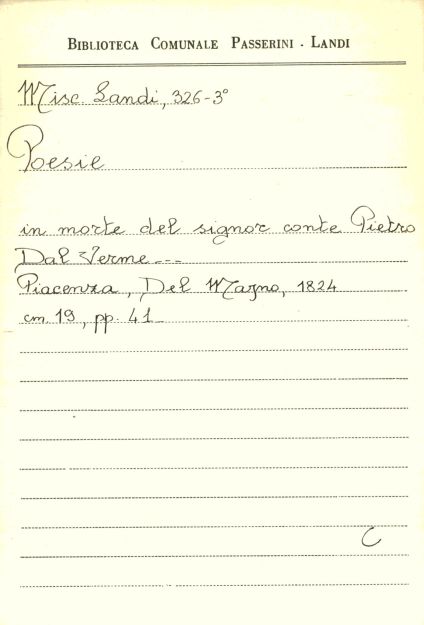 BIBLIOTECA COMUNALE PASSERINI - LANDI
Misc. Landi, 326-3°
Poesie
in morte del signor conte Pietro
Dal Verme ---
Piacenza, Del Majno, 1824
cm. 19, pp. 41
C